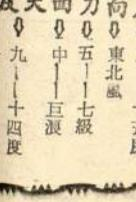 向⇩東北風
力⇩五——七級
面⇩中——巨浪
天⇩九——十四度